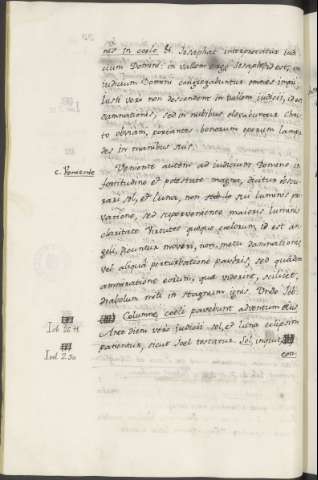 nes in coelo et Josaphat interpretatur jud
icium Domini: in vallem ergo Josaphat id est, in
iudicium Domini congregabuntur omnes impii,
Iusti vero non descendent in vallem judicii, id est
damnationis, sed in nubibus elevabuntur Chri
to obviam, portantes bonorum operum lampa
des in manibus suis.
c. Veniente
Veniente autem ad iudicium Domino in
fortitudine et potestate magna, dicitur obscu
rari sol, et luna, non sui luminis pri
vatione, sed superveniente maioris luminis
claritate Virtutes quoque coelorum id est an
geli, dicuntur moveri, non metu damnationis,
vel aliqua perturbatione pavoris, sed quadam
ammiratione eorum, quae viderint, scilicet,
diabolum mitti in stagnum ignis. Unde Job:
Columnae coeli pavebunt adventum eius
Iob. 26. 11
Ante diem vero judicii sol, et luna eclipsim
patientur, sicut Joel testatur. Sol, inquit,
Ioel 2. 30
con